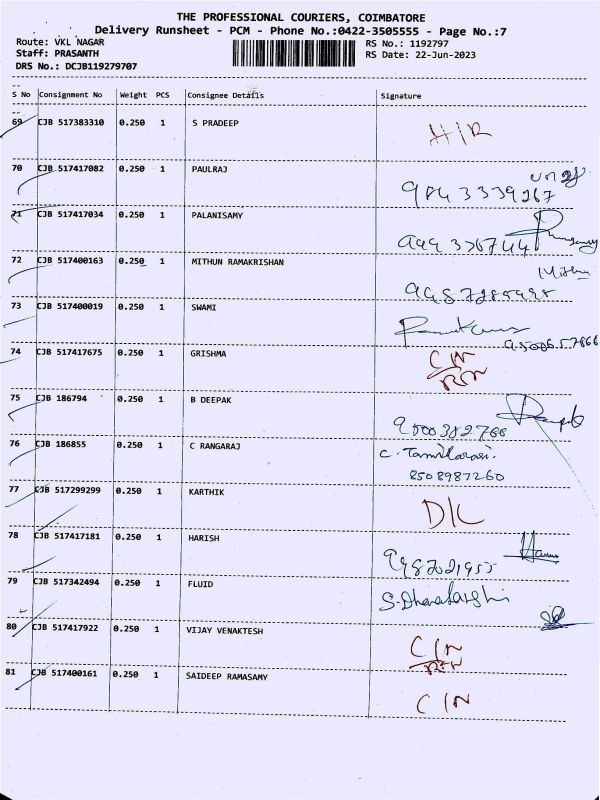 THE PROFESSIONAL COURIERS, COIMBATORE
Delivery Runsheet - PCM - Phone No.:0422-3505555 - Page No.:7
Route: VKL NAGAR
RS No.: 1192797
Staff: PRASANTH
RS Date: 22-Jun-2023
DRS No.: DCJB119279707
S No Consignment No Weight PCS Consignee Details Signature
69 CJB 517383310 0.250 1 S PRADEEP H/R
70 CJB 517417082 0.250 1 PAULRAJ
9843339267
71 CJB 517417034 0.250 1 PALANISAMY
72 CJB 517400163 0.250 1 MITHUN RAMAKRISHAN Mithu
73 CJB 517400019 0.250 1 SWAMI
9500657866
74 CJB 517417675 0.250 1 GRISHMA C/N
75 CJB 186794 0.250 1 B DEEPAK
76 CJB 186855 0.250 1 C RANGARAJ C. Tamilarasi.
8508987260
77 CJB 517299299 0.250 1 KARTHIK D/L
78 CJB 517417181 0.250 1 HARISH
79 CJB 517342494 0.250 1 FLUID
80 CJB 517417922 0.250 1 VIJAY VENAKTESH C/N
81 CJB 517400161 0.250 1 SAIDEEP RAMASAMY C/N